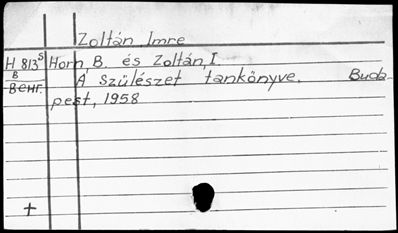 Zoltán Imre
H 813 s Horn, B. és Zoltán, I.
B A Szülészet tankönyve. Buda
Венг. pest, 1958
+